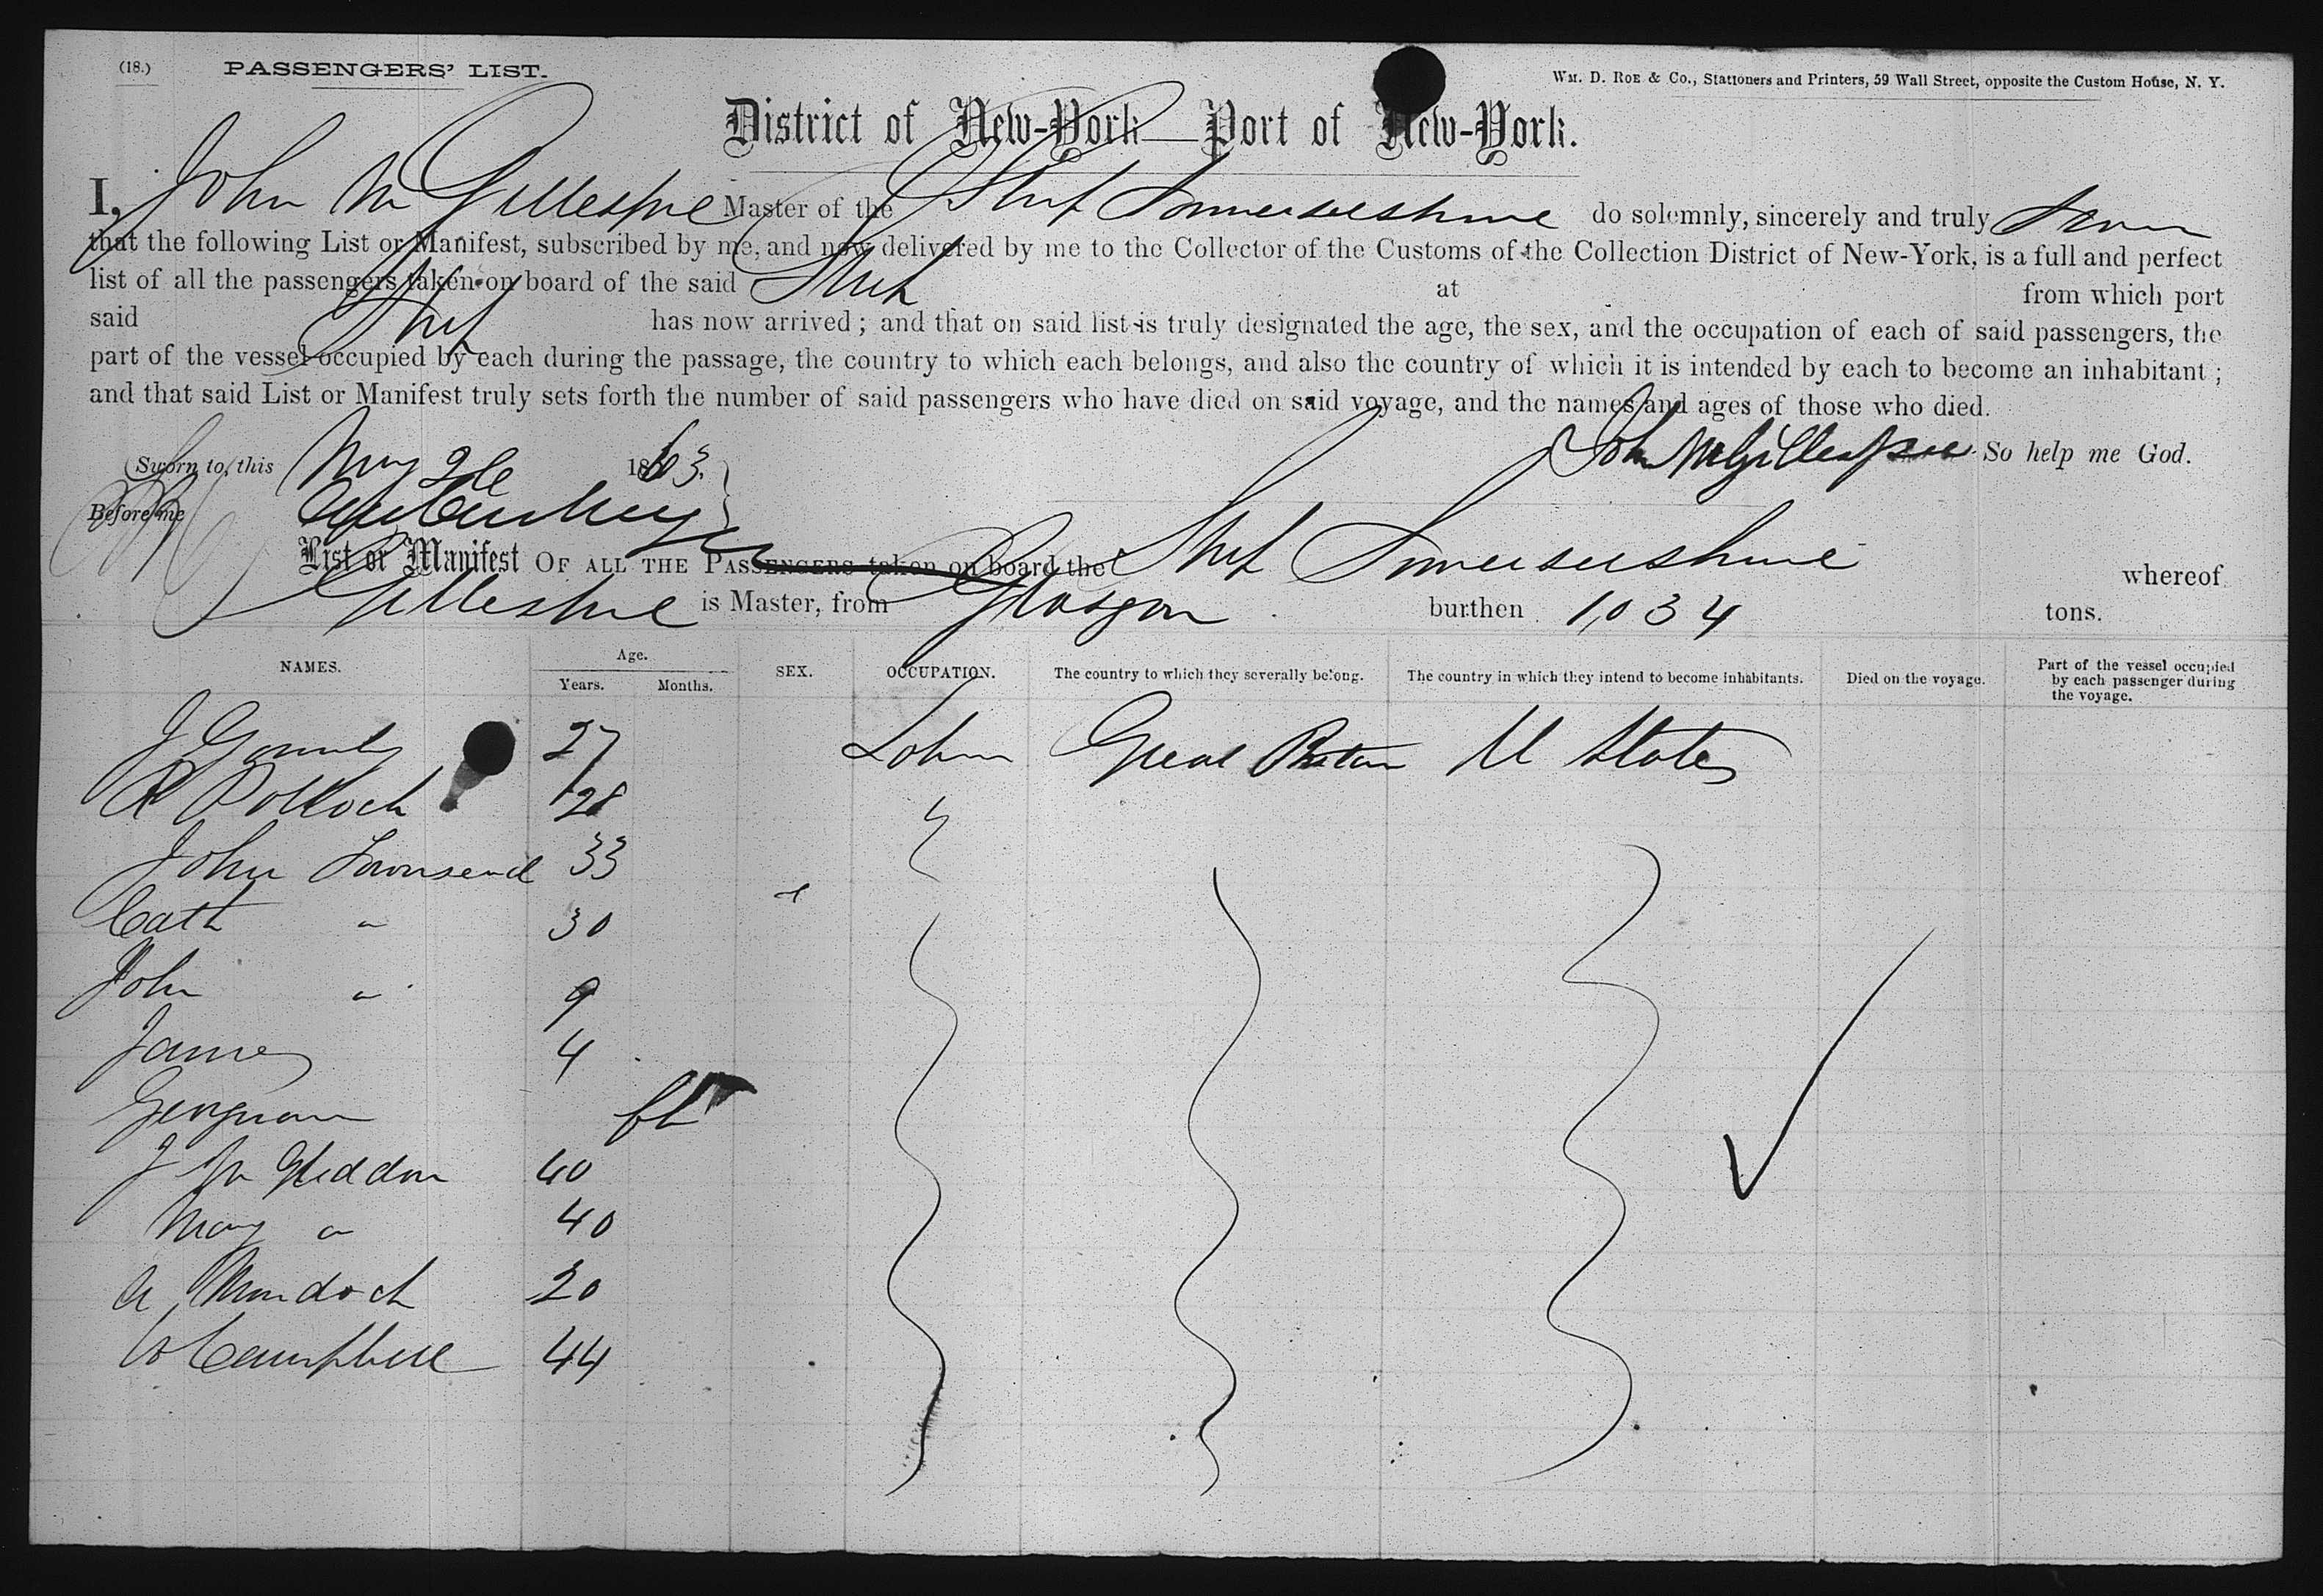 (18.) PASSENGERS' LIST. WM. D. ROE & Co., Stationers and Printers, 59 Wall Street, opposite the Custom House, N. Y.
District of New-York—Port of New-York.
I, John M Gillespie Master of the Ship Somersetshire do solemnly, sincerely and truly swear
that the following List or Manifest, subscribed by me, and now delivered by me to the Collector of the Customs of the Collection District of New-York, is a full and perfect
list of all the passengers taken on board of the said Ship at from which port
said Ship has now arrived; and that on said list is truly designated the age, the sex, and the occupation of each of said passengers, the
part of the vessel occupied by each during the passage, the country to which each belongs, and also the country of which it is intended by each to become an inhabitant;
and that said List or Manifest truly sets forth the number of said passengers who have died on said voyage, and the names and ages of those who died.
Sworn to, this May 26 1863. John M Gillespie So help me God.
Before me
List or Manifest OF ALL THE PASSENGERS taken on board the Ship Somersetshire whereof
Gillespie is Master, from Glasgow burthen 1,034 tons.
NAMES. Age. Years. Months. SEX. OCCUPATION. The country to which they severally belong. The country in which they intend to become inhabitants. Died on the voyage. Part of the vessel occupied by each passenger during the voyage.
J 27 Great Britain U States
R Pollock 28
John Townsend 33
Cath " 30
John " 9
James 4
Georgiana
J 40
Mary " 40
A Murdoch 20
W Campbell 44